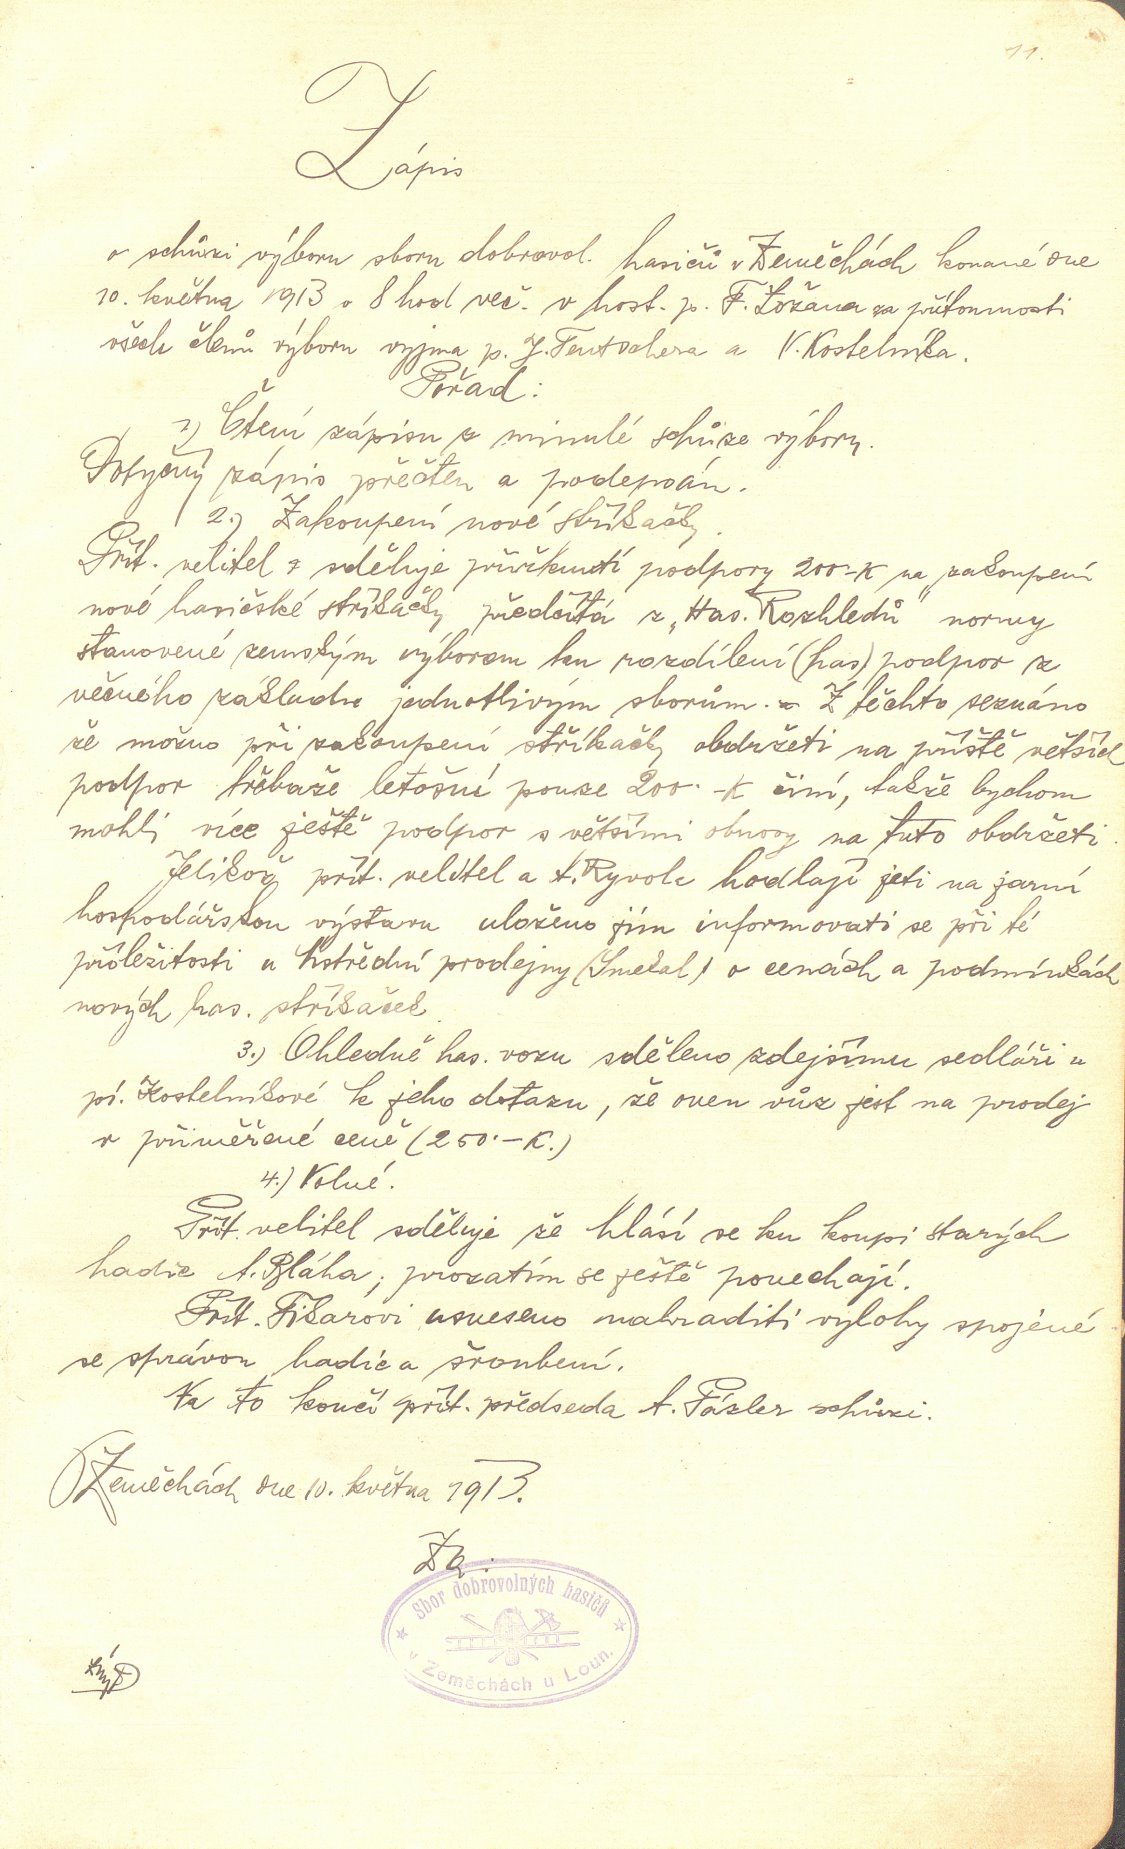 11.
Zápis
o schůzi výboru sboru dobrovol. hasičů v Zeměchách konané dne
10. května 1913 o 8 hod več. v host. p. F. Ložana za přítomnosti
všech členů výboru vyjma p. J. Teutschera a V. Kostelníka.
Pořad:
1) Čtení zápisu z minulé schůze výboru.
Dotyčný zápis přečten a podepsán.
2.) Zakoupení nové stříkačky.
Přít. velitel sděluje přiřknutí podpory 200·-K na zakoupení
nové hasičské stříkačky předčítá z „Has. Rozhledů" normy
stanovené zemským výborem ku rozdílení (has) podpor z
věcného základu jednotlivým sborům. Z těchto seznáno
že možno při zakoupení stříkačky obdržeti na příště větších
podpor třebaže letošní pouze 200·-K činí, takže bychom
mohli více ještě podpor s většími obnosy na tuto obdržeti.
Jelikož přít. velitel a A. Ryvola hodlají jeti na jarní
hospodářskou výstavu uloženo jim informovati se při té
příležitosti u Ústřední prodejny (Smekal) o cenách a podmínkách
nových has. stříkaček.
3.) Ohledně has. vozu sděleno zdejšímu sedláři u
pí. Kostelníkové k jeho dotazu, že onen vůz jest na prodej
v přiměřené ceně (250·-K.)
4.) Volné.
Přít. velitel sděluje že hlásí se ku koupi starých
hadic A. Bláha; prozatím se ještě ponechají.
Přít. Fikarovi usneseno nahraditi výlohy spojené
se správou hadic a šroubení.
Na to končí přít. předseda A. Fázler schůzi.
Zeměchách dne 10. května 1913.
Za:
Sbor dobrovolných hasičů
v Zeměchách u Loun.